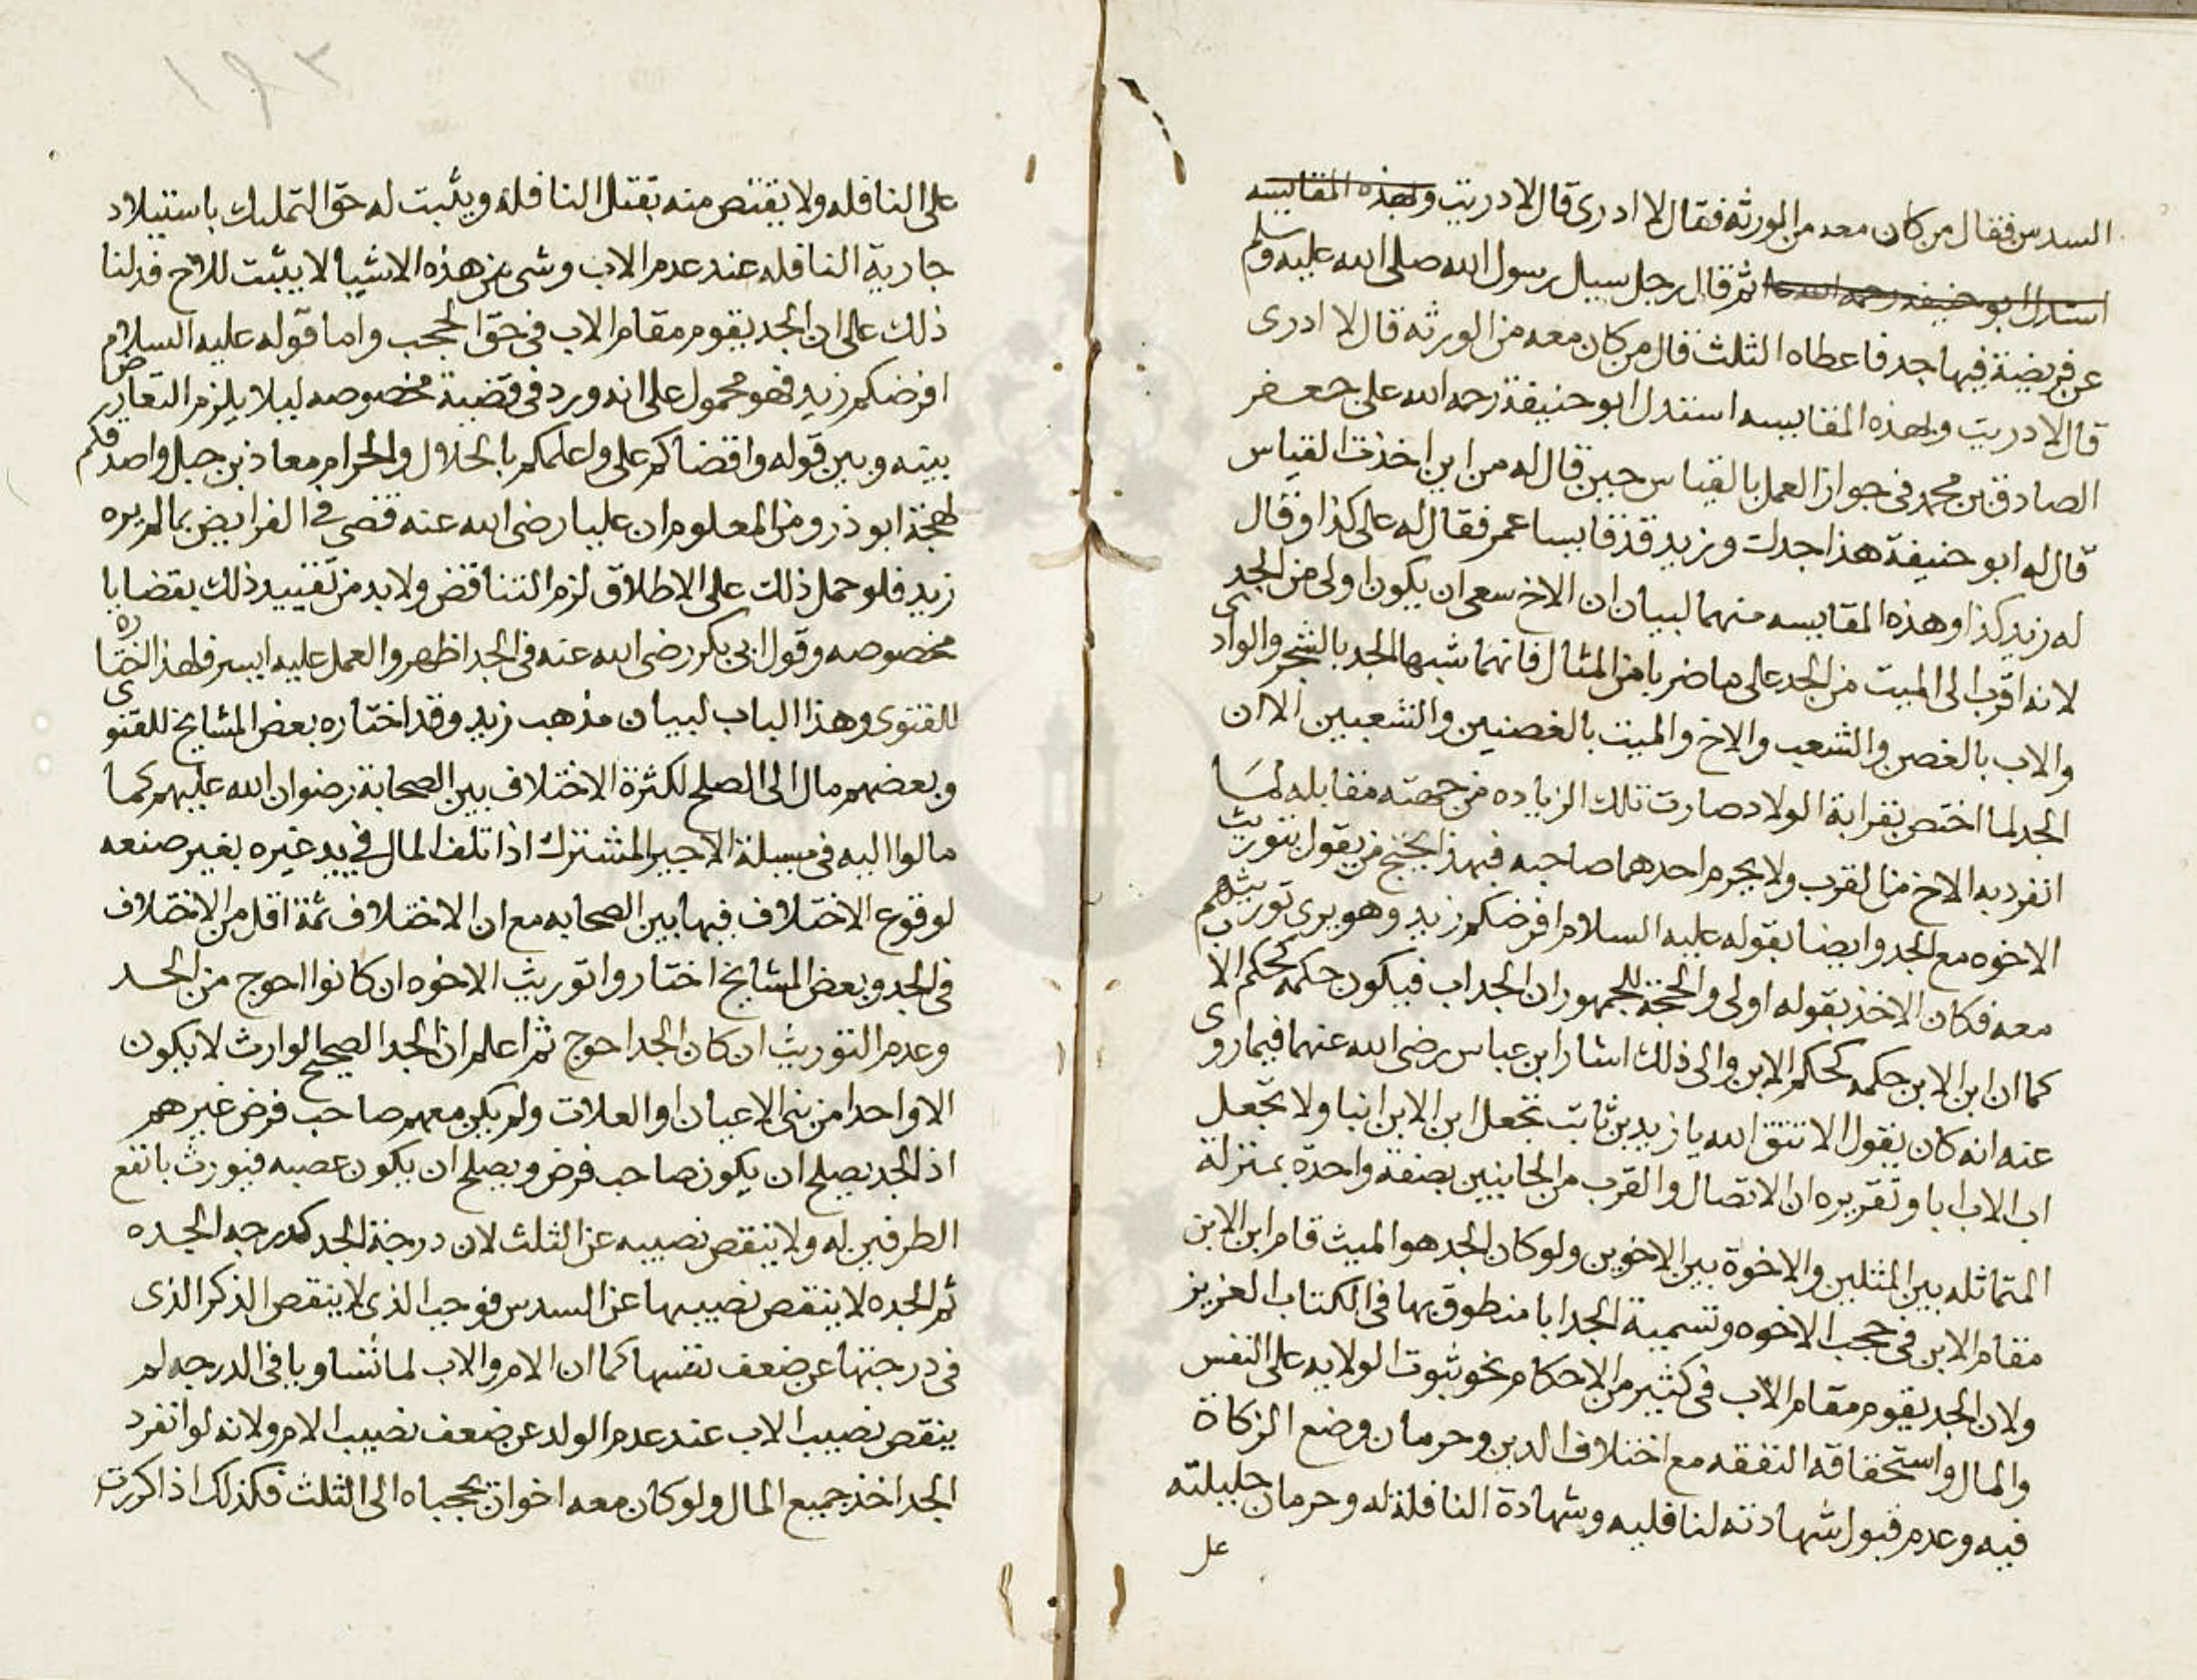 السدس فقال من كان معه من الورثه فقال لا ادرى قال لا دريت ولهذه المقايسه
استدل ابو حنيفه رحمه الله ثم قال رجل سيل رسول الله صلى الله عليه وسلم
عن فريضة فيها جد فاعطاه الثلث قال من كان معه من الورثه قال لا ادرى
قال لا دريت ولهذه المقايسه استدل ابو حنيفة رحمه الله على جعفر
الصادق بن محمد فى جواز العمل بالقياس حين قال له من اين اخذت القياس
قال له ابو حنيفة هذا جدك وزيد قد قايسا عمر فقال له على كذا وقال
له زيد كذا وهذه المقايسه منهما لبيان ان الاخ سعى ان يكون اولى من الجد
لانه اقرب الى الميت من الجد على ما ضربا من المثال فانهما شبها الجد بالشجر والوادى
والاب بالغصن والشعب والاخ والميت بالغصنين والشعبين الا ان
الجد لما اختص بقرابة الولاد صارت تلك الزياده من جهته مقابله لما
انفرد به الاخ من القرب ولا يحرم احدهما صاحبه فبهذا يحتج من يقول بتوريث
الاخوه مع الجد وايضا بقوله عليه السلام افرضكم زيد وهو يرى توريثهم
معه فكان الاخذ بقوله اولى والحجة للجمهور ان الجد اب فيكون حكمه كحكم الاب
كما ان ابن الابن حكمه كحكم الابن والى ذلك اشار ابن عباس رضى الله عنهما فيما روى
عنه انه كان يقول الا تتق الله يا زيد بن ثابت تجعل ابن الابن ابنا ولا تجعل
اب الاب ابا وتقريره ان الاتصال والقرب من الجانبين بصفة واحدة بمنزلة
المتماثله بين المثلين والاخوة بين الاخوين ولو كان الجد هو الميت قام ابن الابن
مقام الابن فى حجب الاخوه وتسمية الجد ابا منطوق بها فى الكتاب العزيز
ولان الجد يقوم مقام الاب فى كثير من الاحكام نحو ثبوت الولايه على النفس
والمال واستحقاقه النفقه مع اختلاف الدين وحرمان وضع الزكاة
فيه وعدم قبول شهادته لنافليه وشهادة النافلة له وحرمان حليلته
على
١٩٢
على النافله ولا يقتص منه بقتل النافلة ويثبت له حق التمليك باستيلاد
جارية النافله عند عدم الاب وشى من هذه الاشيا لا يثبت للاخ فدلنا
ذلك على ان الجد يقوم مقام الاب فى حق الحجب واما قوله عليه السلام
افرضكم زيد فهو محمول على انه ورد فى قضية مخصوصه ليلا يلزم التعارض
بينه وبين قوله واقضاكم على واعلمكم بالحلال والحرام معاذ بن جبل واصدقكم
لهجة ابو ذر ومن المعلوم ان عليا رضى الله عنه قضى فى الفرايض بما لم يره
زيد فلو حمل ذلك على الاطلاق لزم التناقض ولا بد من تقييد ذلك بقضايا
مخصوصه وقول ابى بكر رضى الله عنه فى الجد اظهر والعمل عليه ايسر فلهذا اختاره
للفتوى وهذا الباب لبيان مذهب زيد وقد اختاره بعض المشايخ للفتوى
وبعضهم مال الى الصلح لكثرة الاختلاف بين الصحابة رضوان الله عليهم كما
مالوا اليه فى مسيلة الاجير المشترك اذا تلف المال فى يد غيره بغير صنعه
لوقوع الاختلاف فيها بين الصحابه مع ان الاختلاف ثمة اقل من الاختلاف
فى الجد وبعض المشايخ اختاروا توريث الاخوه ان كانوا احوج من الجد
وعدم التوريث ان كان الجد احوج ثم اعلم ان الجد الصحيح الوارث لا يكون
الا واحدا من بنى الاعيان او العلات ولم يكن معهم صاحب فرض غيرهم
اذ الجد يصلح ان يكون صاحب فرض ويصلح ان يكون عصبه فيورث بانفع
الطرفين له ولا ينقص نصيبه عن الثلث لان درجة الجد كدرجه الجده
ثم الجده لا ينقص نصيبها عن السدس فوجب الذى لا ينقص الذكر الذى
فى درجتها عن ضعف نفسها كما ان الام والاب لما تساويا فى الدرجه لم
ينقص نصيب الاب عند عدم الولد عن ضعف نصيب الام ولانه لو انفرد
الجد اخذ جميع المال ولو كان معه اخوان يحجباه الى الثلث فكذلك اذا كررت